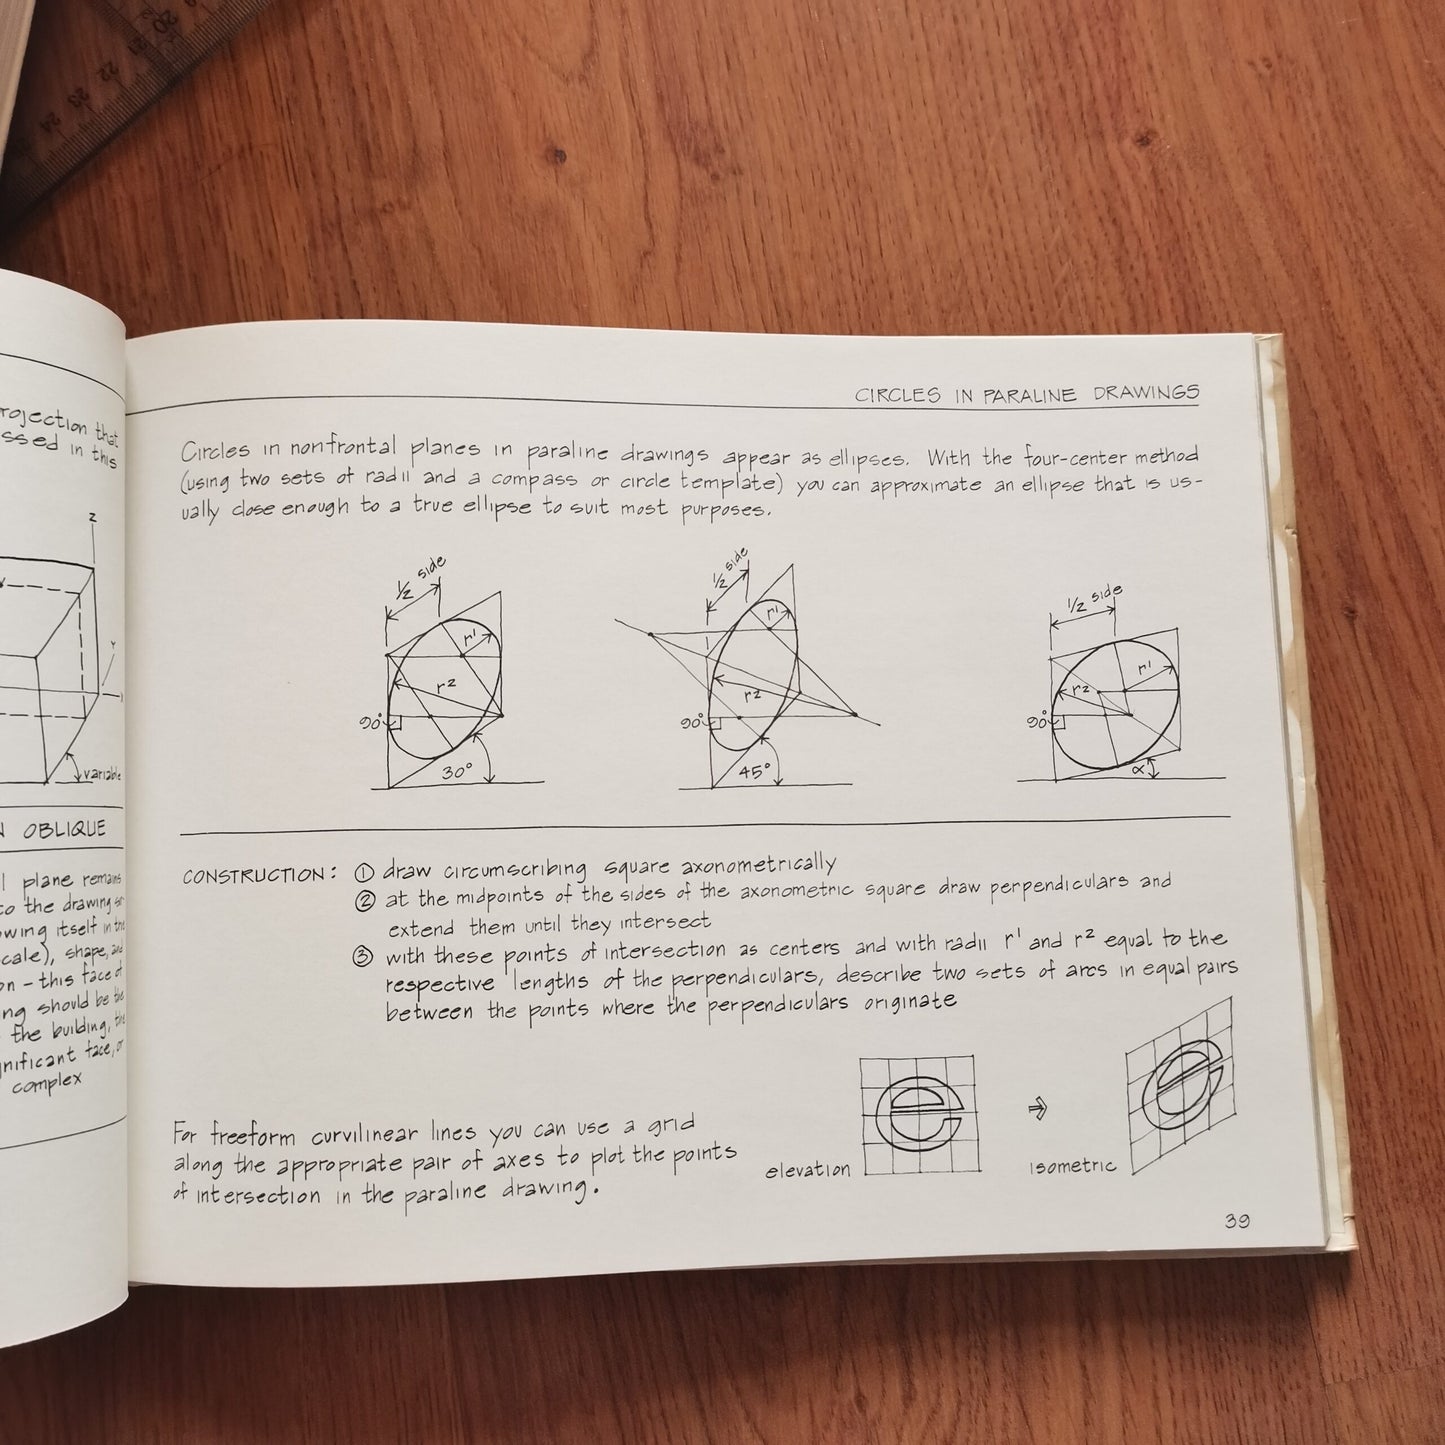 20
21
22
23
24
that
ssed in this
Z
Y
variable
OBLIQUE
plane remains
to the drawing
owing itself in the
scale), shape, and
on - this face of
ng should be the
the building, the
gnificant face, or
complex
CIRCLES IN PARALINE DRAWINGS
Circles in nonfrontal planes in paraline drawings appear as ellipses. With the four-center method
(using two sets of radii and a compass or circle template) you can approximate an ellipse that is us-
ually close enough to a true ellipse to suit most purposes.
1/2 side
r1
r2
90°
30°
1/2 side
r1
r2
90°
45°
1/2 side
r1
r2
90°
α
CONSTRUCTION: ① draw circumscribing square axonometrically
② at the midpoints of the sides of the axonometric square draw perpendiculars and
extend them until they intersect
③ with these points of intersection as centers and with radii r1 and r2 equal to the
respective lengths of the perpendiculars, describe two sets of arcs in equal pairs
between the points where the perpendiculars originate
For freeform curvilinear lines you can use a grid
along the appropriate pair of axes to plot the points
of intersection in the paraline drawing.
elevation
e
⇒
isometric
e
39